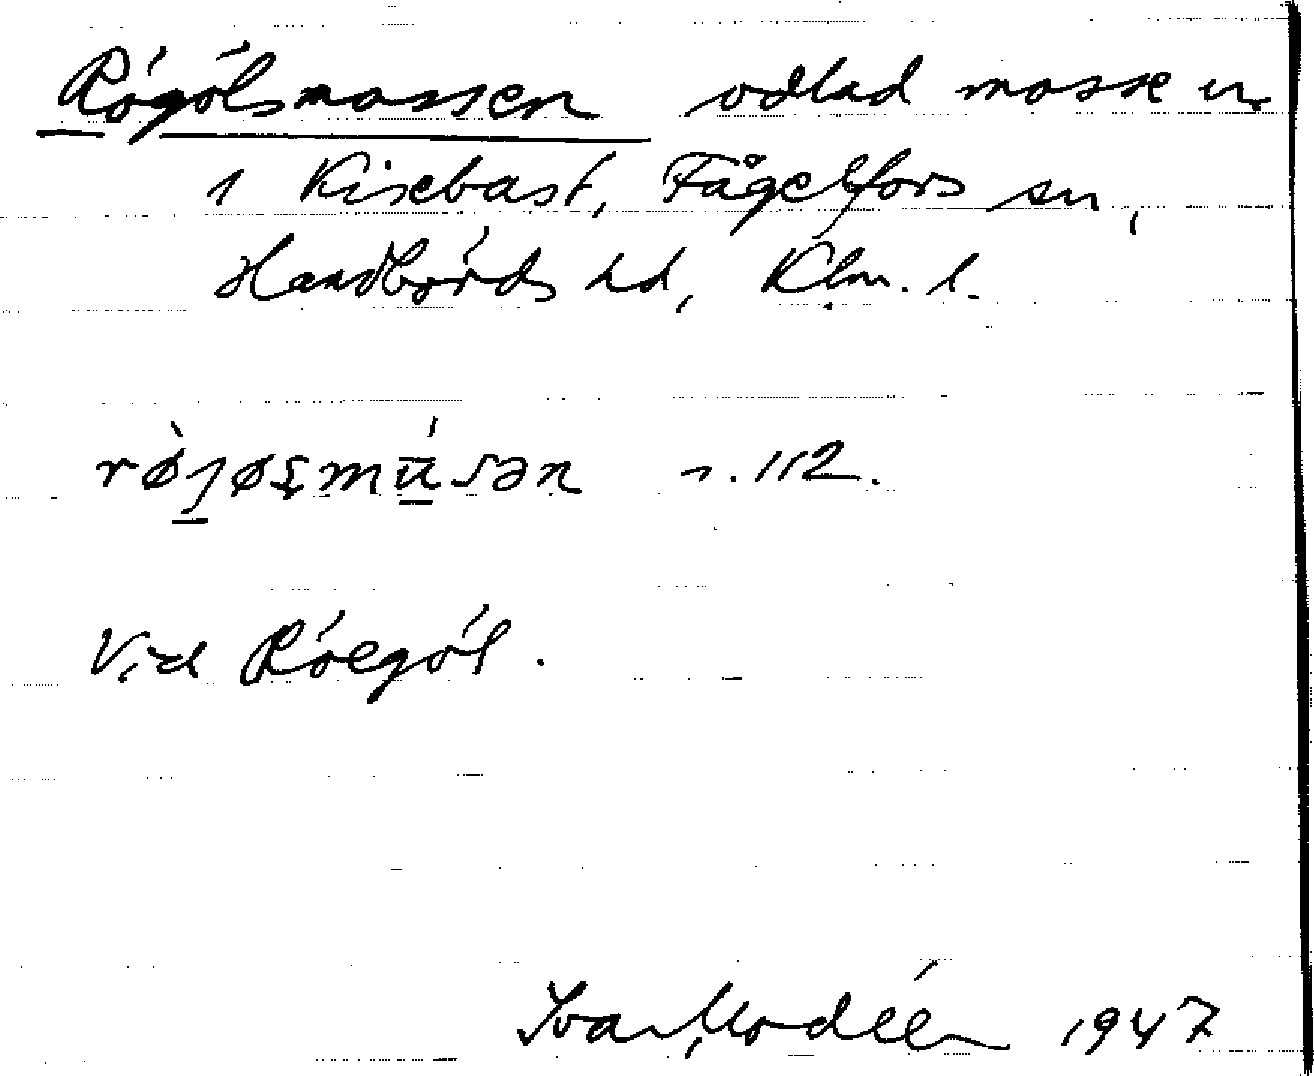 Rógólsmossen odlad mosse u.
i Kisebast, Fågelfors sn,
Handbörds hd, Klm. l.
n. 112.
Vid Róegól.
Ivar Modéer 1947